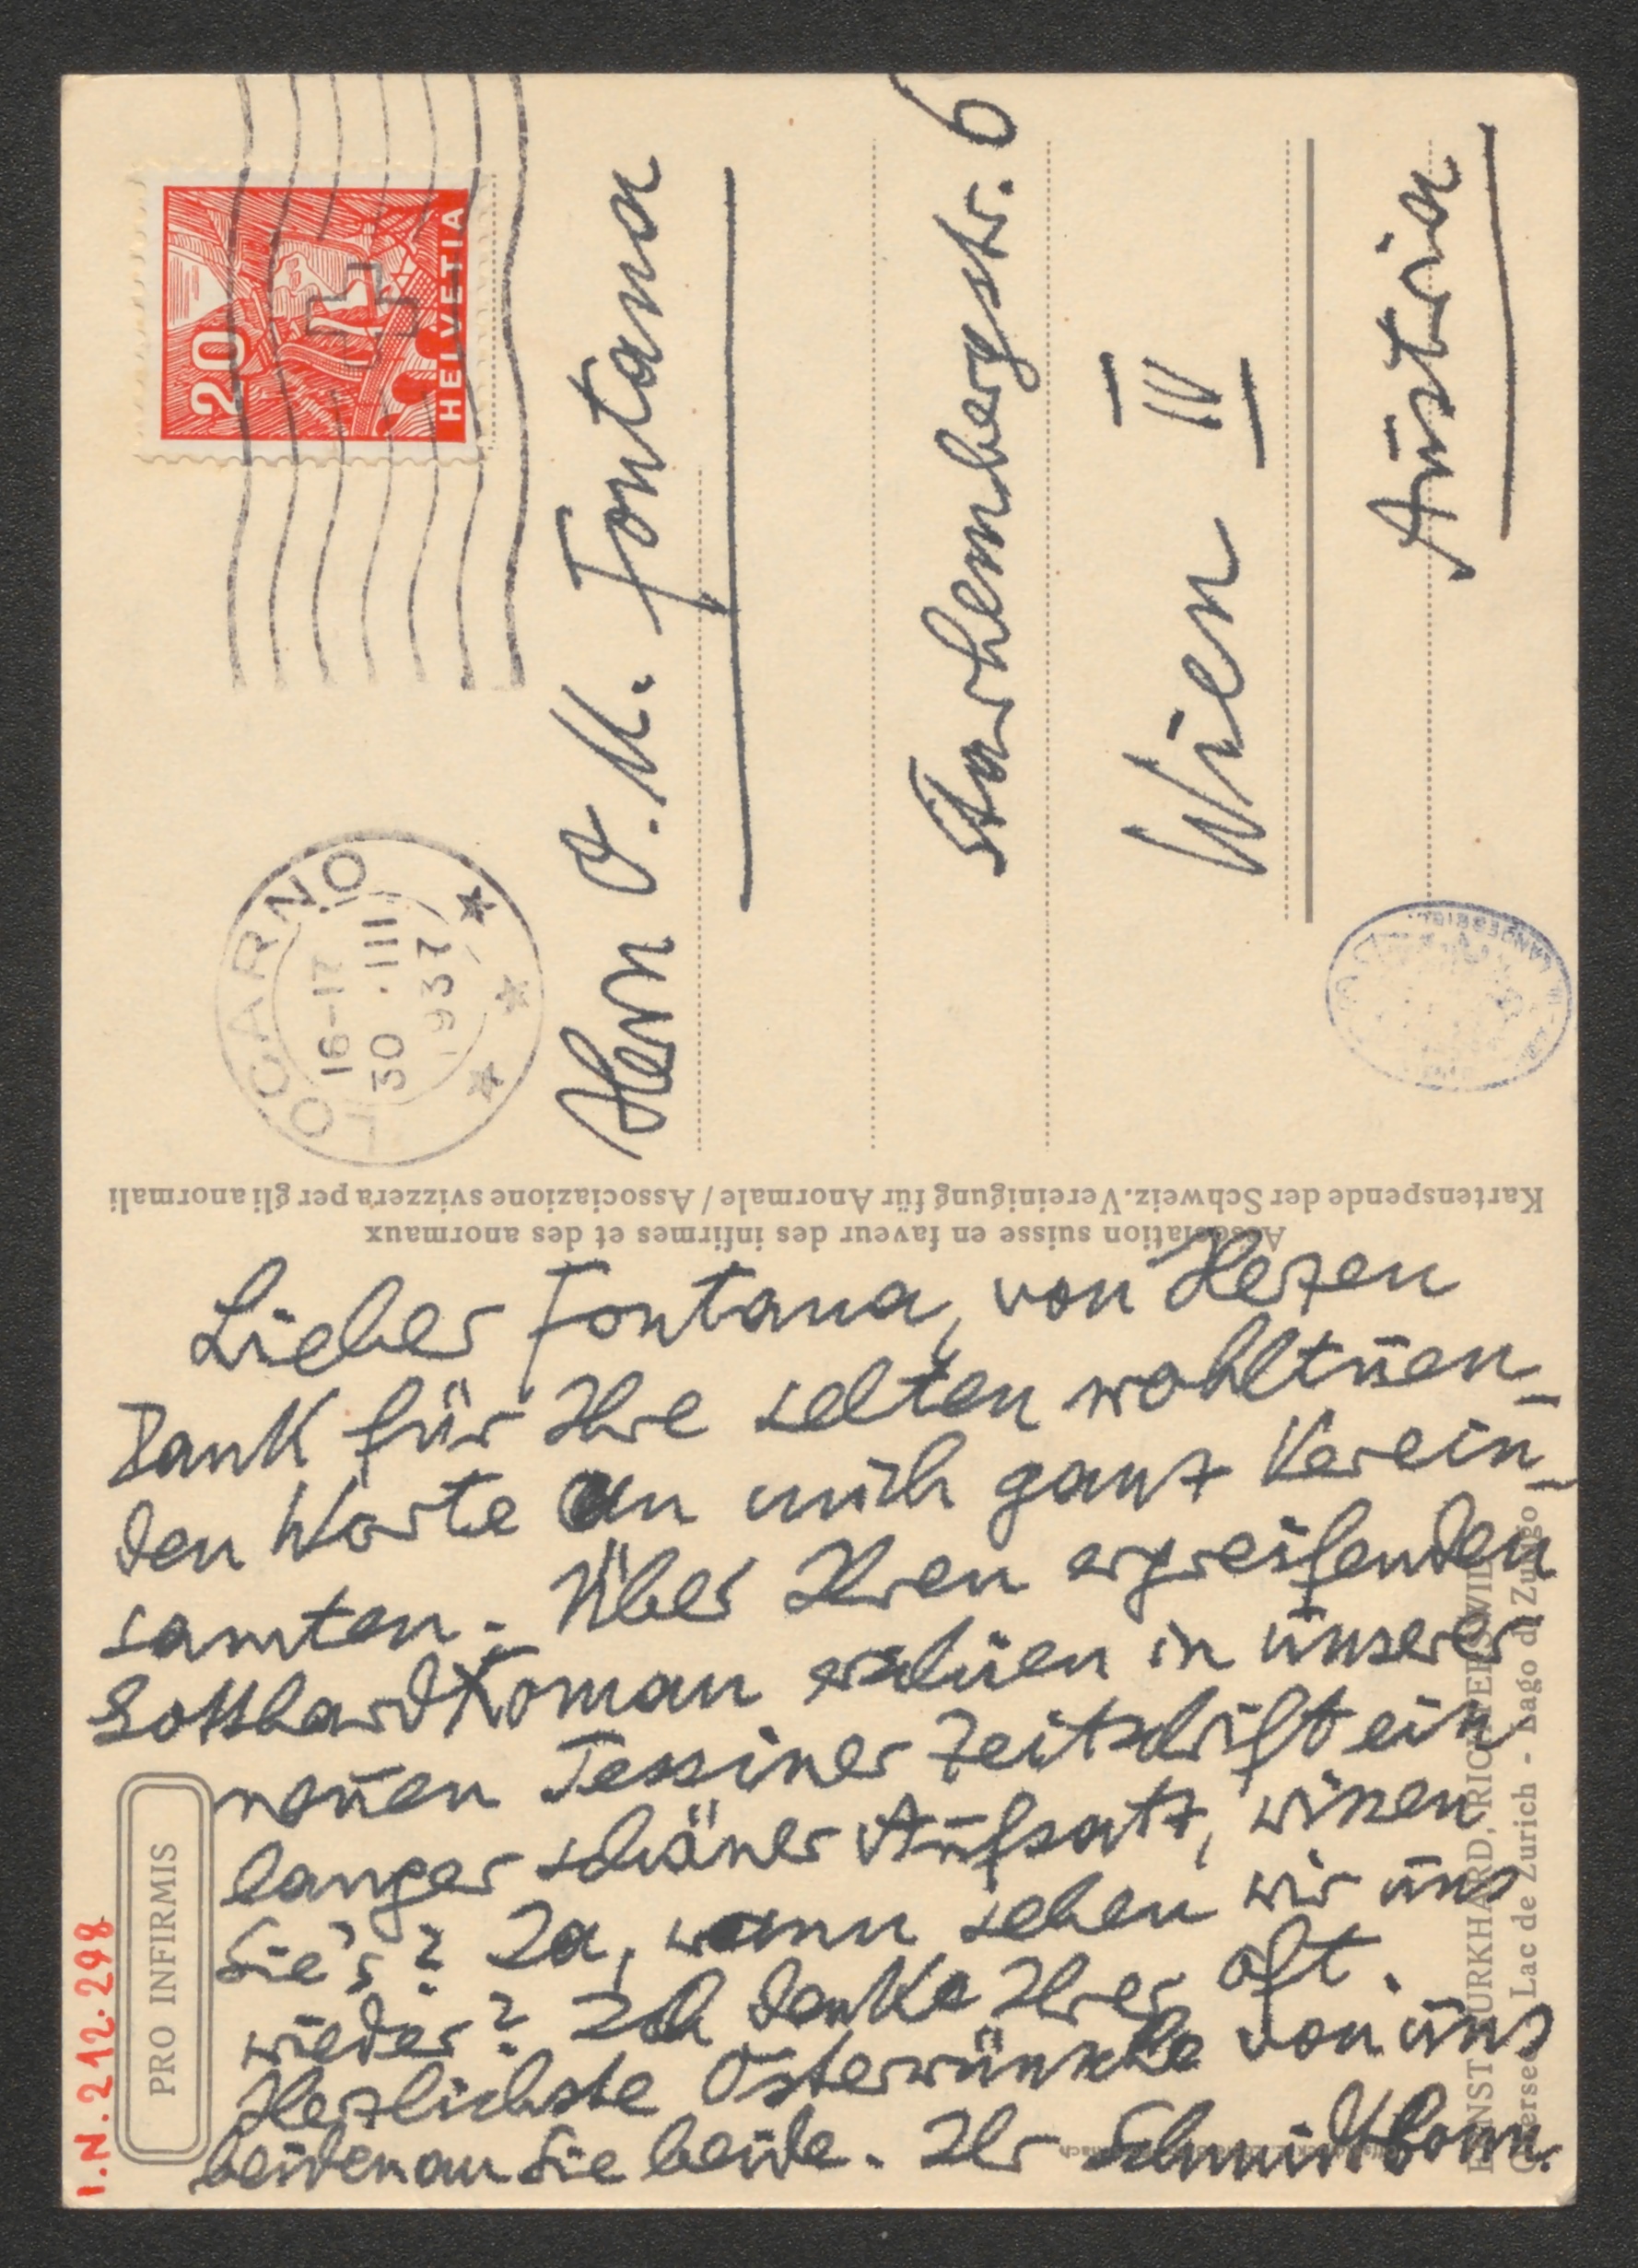 20
HELVETIA
LOCARNO
16-17
30.III
1937
Herrn O. M. Fontana
Starhembergstr. 6
Wien IV
Austria
Kartenspende der Schweiz. Vereinigung für Anormale / Associazione svizzera per gli anormali
Association suisse en faveur des infirmes et des anormaux
Lieber Fontana, von Herzen
Dank für Ihre selten wohltuen-
den Worte an mich ganz Verein-
samten. Über Ihren ergreifenden
Gotthard Roman erschien in unserer
neuen Tessiner Zeitschrift ein
langer schöner Aufsatz, wissen
Sie's? Ja, wann sehen wir uns
wieder? Ich denke Ihrer oft.
Herzlichste Osterwünsche von uns
beiden an Sie beide. Ihr Schmidtbonn.
PRO INFIRMIS
I.N. 212.298
ERNST BURKHARD, RICHTERSWIL
Lac de Zurich - Lago di Zurigo